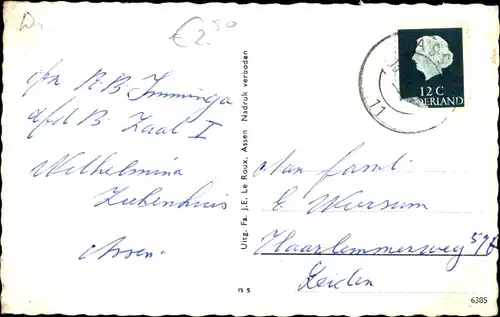 Dr
€2.50
afz. R.B. Imminga
afd B. Zaal I
Wilhelmina
Ziekenhuis
Assen.
Uitg. Fa. J.E. Le Roux, Assen Nadruk verboden
n s
12 C
NEDERLAND
11
Aan fam.
E Wiersum
Haarlemmerweg 57
Leiden
6385